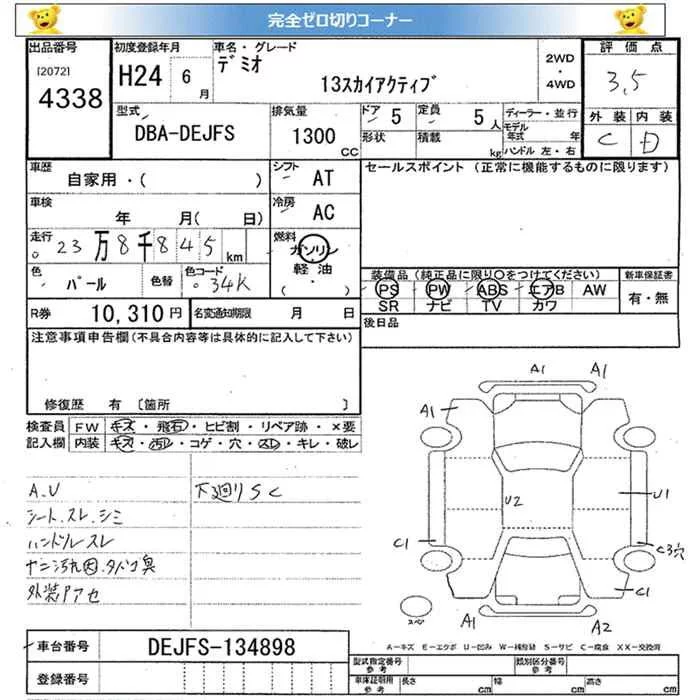 完全ゼロ切りコーナー
出品番号 初度登録年月 車名・グレード 評価点
[2072] 4338 H24 6月 デミオ 13スカイアクティブ 2WD・4WD 3.5
型式 排気量 ドア 5 定員 5人 ディーラー・並行 外装 内装
DBA-DEJFS 1300cc 形状 積載 kg モデル年式 年 ハンドル 左・右 C D
車歴 シフト セールスポイント (正常に機能するものに限ります)
自家用・( ) AT
車検 冷房
年 月( 日) AC
走行 燃料
23万8千845km ガソリン
軽油
( ・ )
色 色替 色コード 装備品 (純正品に限り○をつけてください) 新車保証書
パール 34K PS PW ABS エアB AW 有・無
SR ナビ TV カワ
R券 10,310円 名変通知期限 月 日 後日品
注意事項申告欄 (不具合内容等は具体的に記入して下さい)
修復歴 有 〔箇所 〕
検査員 FW キズ・飛石・ヒビ割・リペア跡・×要
記入欄 内装 キズ・汚レ・コゲ・穴・スレ・キレ・破レ
A.U 下廻りSC
シート.スレ.シミ
ハンドルスレ
ナニ汚れ因.タバコ臭
外装アセ
A1 A1
A1
U2 U1
C1 C3穴
C1
スペア A1 A2
A-キズ E-エクボ U-凹み W-補修跡 S-サビ C-腐食 XX-交換済
車台番号 DEJFS-134898
登録番号
型式指定番号 参考 類別区分番号 参考
車庫証明用 参考 長さ cm 幅 cm 高さ cm